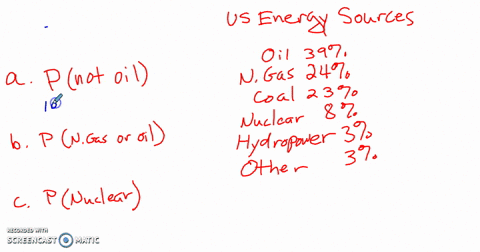 US Energy Sources
Oil 39%
N.Gas 24%
Coal 23%
Nuclear 8%
Hydropower 3%
Other 3%
a. P(not oil)
b. P(N.Gas or oil)
c. P(Nuclear)
RECORDED WITH
SCREENCAST MATIC